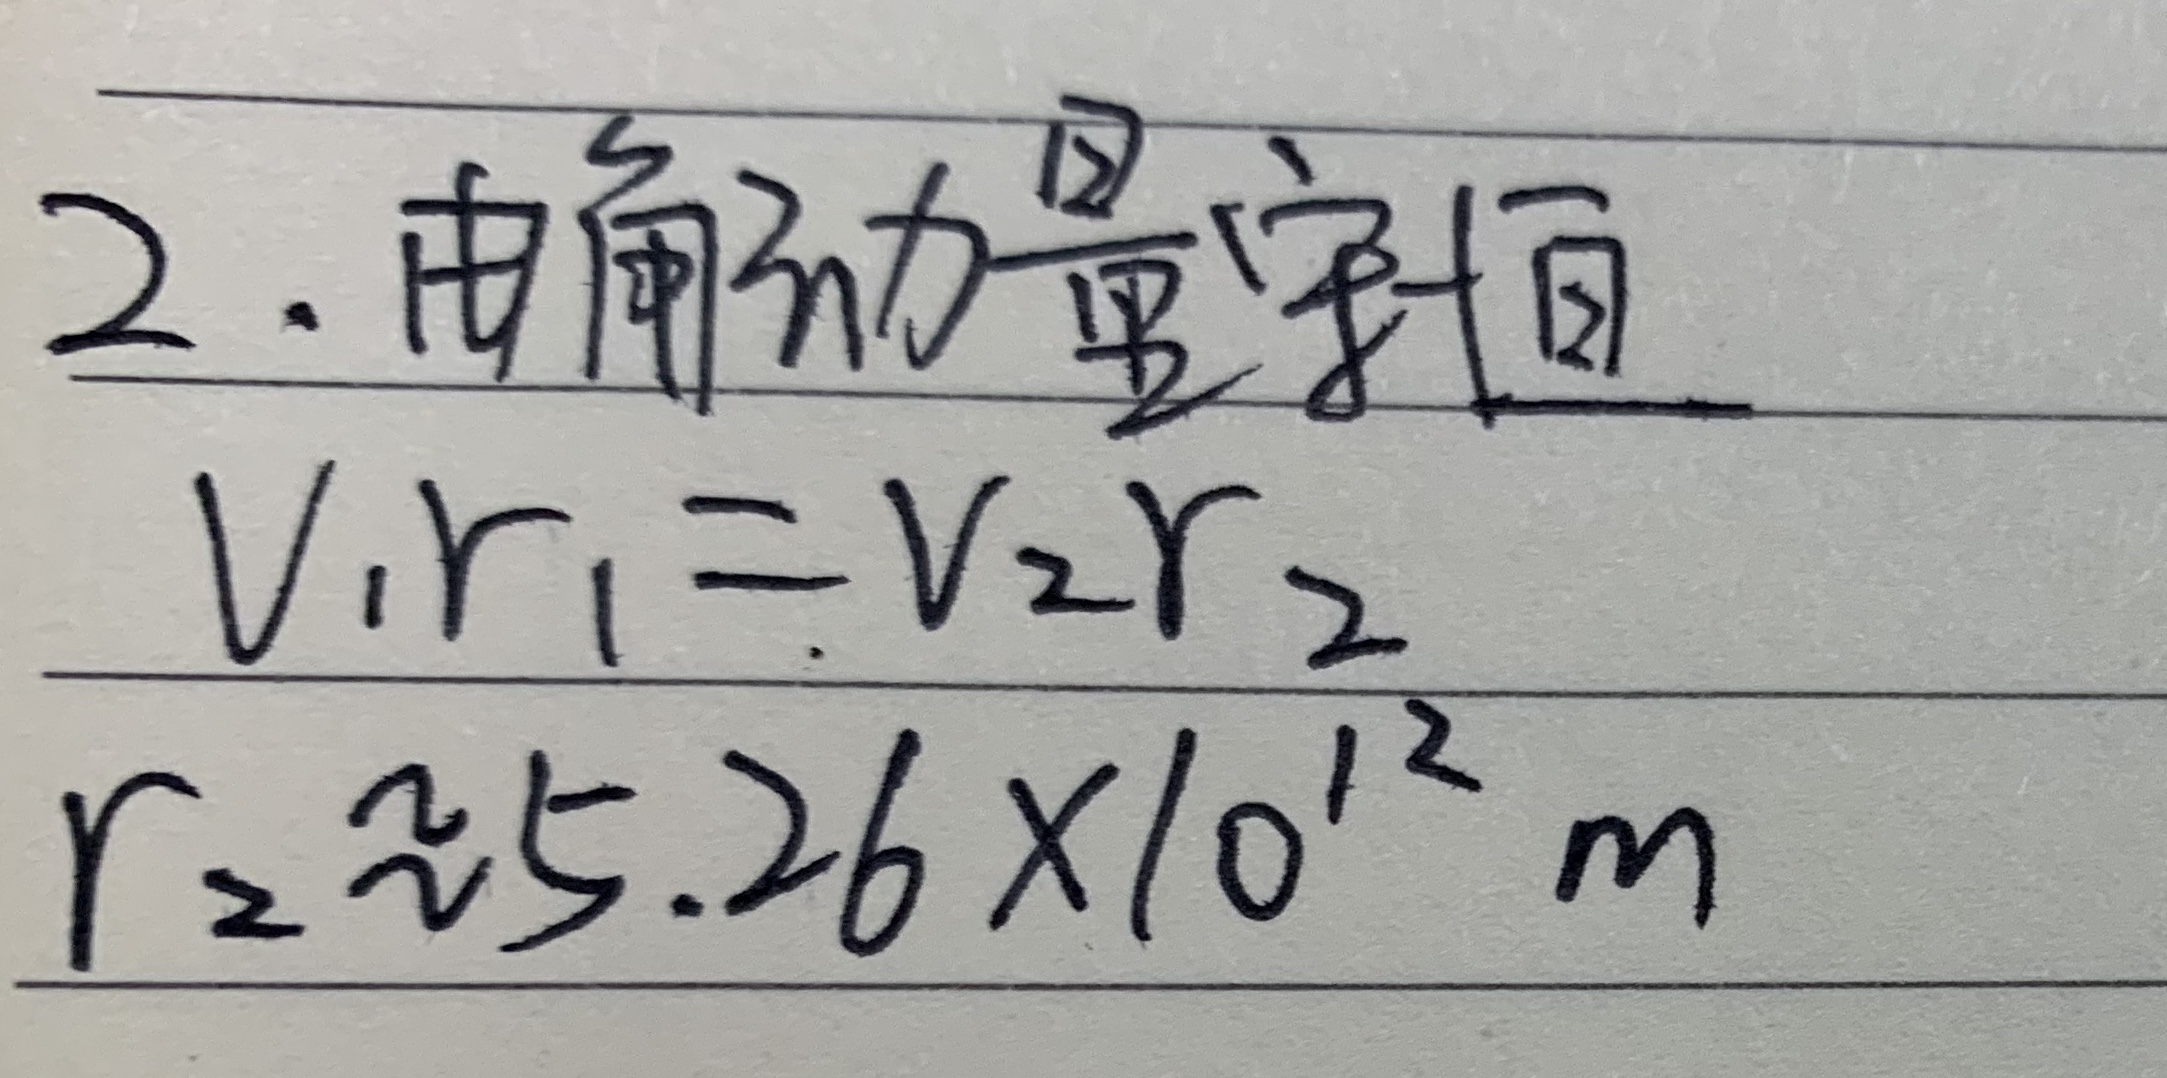 2.由角动量守恒
v₁r₁=v₂r₂
r₂≈5.26×10¹² m